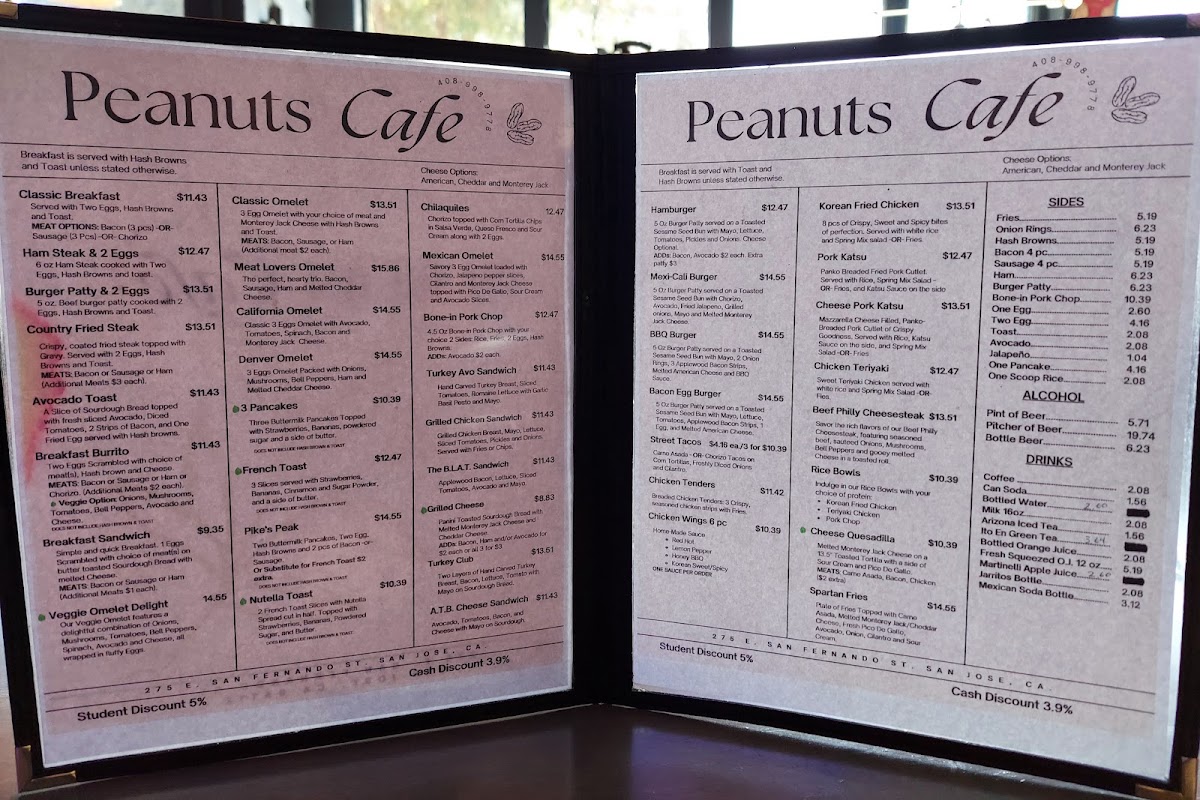 Peanuts Cafe
408-998-9778
Breakfast is served with Hash Browns
and Toast unless stated otherwise.
Cheese Options:
American, Cheddar and Monterey Jack
Classic Breakfast $11.43
Served with Two Eggs, Hash Browns
and Toast.
MEAT OPTIONS: Bacon (3 pcs) -OR-
Sausage (3 Pcs) -OR- Chorizo
Ham Steak & 2 Eggs $12.47
6 oz Ham Steak cooked with Two
Eggs, Hash Browns and toast.
Burger Patty & 2 Eggs $13.51
5 oz. Beef burger patty cooked with 2
Eggs, Hash Browns and Toast.
Country Fried Steak $13.51
Crispy, coated fried steak topped with
Gravy. Served with 2 Eggs, Hash
Browns and Toast.
MEATS: Bacon or Sausage or Ham
(Additional Meats $3 each).
Avocado Toast $11.43
A Slice of Sourdough Bread topped
with fresh sliced Avocado, Diced
Tomatoes, 2 Strips of Bacon, and One
Fried Egg served with Hash browns.
Breakfast Burrito $11.43
Two Eggs Scrambled with choice of
meat(s), Hash brown and Cheese.
MEATS: Bacon or Sausage or Ham or
Chorizo. (Additional Meats $2 each).
Veggie Option: Onions, Mushrooms,
Tomatoes, Bell Peppers, Avocado and
Cheese.
DOES NOT INCLUDE HASH BROWN & TOAST
Breakfast Sandwich $9.35
Simple and quick Breakfast. 1 Eggs
Scrambled with choice of meat(s) on
butter toasted Sourdough Bread with
melted Cheese.
MEATS: Bacon or Sausage or Ham
(Additional Meats $1 each).
Veggie Omelet Delight 14.55
Our Veggie Omelet features a
delightful combination of Onions,
Mushrooms, Tomatoes, Bell Peppers,
Spinach, Avocado and Cheese, all
wrapped in fluffy Eggs.
Classic Omelet $13.51
3 Egg Omelet with your choice of meat and
Monterey Jack Cheese with Hash Browns
and Toast.
MEATS: Bacon, Sausage, or Ham
(Additional meat $2 each).
Meat Lovers Omelet $15.86
The perfect, hearty trio. Bacon,
Sausage, Ham and Melted Cheddar
Cheese.
California Omelet $14.55
Classic 3 Eggs Omelet with Avocado,
Tomatoes, Spinach, Bacon and
Monterey Jack Cheese.
Denver Omelet $14.55
3 Eggs Omelet Packed with Onions,
Mushrooms, Bell Peppers, Ham and
Melted Cheddar Cheese.
3 Pancakes $10.39
Three Buttermilk Pancakes Topped
with Strawberries, Bananas, powdered
sugar and a side of butter.
DOES NOT INCLUDE HASH BROWN & TOAST
French Toast $12.47
3 Slices served with Strawberries,
Bananas, Cinnamon and Sugar Powder,
and a side of butter.
DOES NOT INCLUDE HASH BROWN & TOAST
Pike's Peak $14.55
Two Buttermilk Pancakes, Two Egg,
Hash Browns and 2 pcs of Bacon -or-
Sausage.
Or Substitute for French Toast $2
extra.
DOES NOT INCLUDE HASH BROWN & TOAST
Nutella Toast $10.39
2 French Toast Slices with Nutella
Spread cut in half. Topped with
Strawberries, Bananas, Powdered
Sugar, and Butter.
DOES NOT INCLUDE HASH BROWN & TOAST
Chilaquiles 12.47
Chorizo topped with Corn Tortilla Chips
in Salsa Verde, Queso Fresco and Sour
Cream along with 2 Eggs.
Mexican Omelet $14.55
Savory 3 Egg Omelet loaded with
Chorizo, Jalapeno pepper slices,
Cilantro and Monterey Jack Cheese
topped with Pico De Galo, Sour Cream
and Avocado Slices.
Bone-in Pork Chop $12.47
4.5 Oz Bone-in Pork Chop with your
choice 2 Sides: Rice, Fries, 2 Eggs, Hash
Browns.
ADDs: Avocado $2 each.
Turkey Avo Sandwich $11.43
Hand Carved Turkey Breast, Sliced
Tomatoes, Romaine Lettuce with Garlic
Basil Pesto and Mayo.
Grilled Chicken Sandwich $11.43
Grilled Chicken Breast, Mayo, Lettuce,
Sliced Tomatoes, Pickles and Onions.
Served with Fries or Chips.
The B.L.A.T. Sandwich $11.43
Applewood Bacon, Lettuce, Sliced
Tomatoes, Avocado and Mayo.
Grilled Cheese $8.83
Panini Toasted Sourdough Bread with
Melted Monterey Jack Cheese and
Cheddar Cheese.
ADDs: Bacon, Ham and/or Avocado for
$2 each or all 3 for $3
Turkey Club $13.51
Two Layers of Hand Carved Turkey
Breast, Bacon, Lettuce, Tomato with
Mayo on Sourdough Bread.
A.T.B. Cheese Sandwich $11.43
Avocado, Tomatoes, Bacon, and
Cheese with Mayo on Sourdough.
275 E. SAN FERNANDO ST. SAN JOSE, CA.
Student Discount 5%
Cash Discount 3.9%
Peanuts Cafe
408-998-9778
Breakfast is served with Toast and
Hash Browns unless stated otherwise.
Cheese Options:
American, Cheddar and Monterey Jack
Hamburger $12.47
5 Oz Burger Patty served on a Toasted
Sesame Seed Bun with Mayo, Lettuce,
Tomatoes, Pickles and Onions. Cheese
Optional.
ADDs: Bacon, Avocado $2 each. Extra
patty $3
Mexi-Cali Burger $14.55
5 Oz Burger Patty served on a Toasted
Sesame Seed Bun with Chorizo,
Avocado, Fried Jalapeno, Grilled
onions, Mayo and Melted Monterey
Jack Cheese
BBQ Burger $14.55
5 Oz Burger Patty served on a Toasted
Sesame Seed Bun with Mayo, 2 Onion
Rings, 3 Applewood Bacon Strips,
Melted American Cheese and BBQ
Sauce.
Bacon Egg Burger $14.55
5 Oz Burger Patty served on a Toasted
Sesame Seed Bun with Mayo, Lettuce,
Tomatoes, Applewood Bacon Strips, 1
Egg, and Melted American Cheese.
Street Tacos $4.16 ea./3 for $10.39
Carne Asada -OR- Chorizo Tacos on
Corn Tortillas, Freshly Diced Onions
and Cilantro.
Chicken Tenders $11.42
Breaded Chicken Tenders: 3 Crispy,
seasoned chicken strips with Fries.
Chicken Wings 6 pc $10.39
Home Made Sauce
Red Hot
Lemon Pepper
Honey BBQ
Korean Sweet/Spicy
ONE SAUCE PER ORDER
Korean Fried Chicken $13.51
8 pcs of Crispy, Sweet and Spicy bites
of perfection. Served with white rice
and Spring Mix salad -OR- Fries.
Pork Katsu $12.47
Panko Breaded Fried Pork Cutlet.
Served with Rice, Spring Mix Salad -
OR- Fries, and Katsu Sauce on the side
Cheese Pork Katsu $13.51
Mozzarella Cheese Filled, Panko-
Breaded Pork Cutlet of Crispy
Goodness, Served with Rice, Katsu
Sauce on the side, and Spring Mix
Salad -OR- Fries.
Chicken Teriyaki $12.47
Sweet Teriyaki Chicken served with
white rice and Spring Mix Salad -OR-
Fries.
Beef Philly Cheesesteak $13.51
Savor the rich flavors of our Beef Philly
Cheesesteak, featuring seasoned
beef, sauteed Onions, Mushrooms,
Bell Peppers and gooey melted
Cheese in a toasted roll.
Rice Bowls $10.39
Indulge in our Rice Bowls with your
choice of protein:
Korean Fried Chicken
Teriyaki Chicken
Pork Chop
Cheese Quesadilla $10.39
Melted Monterey Jack Cheese on a
13.5" Toasted Tortilla with a side of
Sour Cream and Pico De Gallo.
MEATS: Carne Asada, Bacon, Chicken
($2 extra)
Spartan Fries $14.55
Plate of Fries Topped with Carne
Asada, Melted Monterey Jack/Cheddar
Cheese, Fresh Pico De Gallo,
Avocado, Onion, Cilantro and Sour
Cream.
SIDES
Fries 5.19
Onion Rings 6.23
Hash Browns 5.19
Bacon 4 pc 5.19
Sausage 4 pc 5.19
Ham 6.23
Burger Patty 6.23
Bone-in Pork Chop 10.39
One Egg 2.60
Two Egg 4.16
Toast 2.08
Avocado 2.08
Jalapeño 1.04
One Pancake 4.16
One Scoop Rice 2.08
ALCOHOL
Pint of Beer 5.71
Pitcher of Beer 19.74
Bottle Beer 6.23
DRINKS
Coffee 2.08
Can Soda 1.56
Bottled Water 2.60
Milk 16oz 2.08
Arizona Iced Tea 1.56
Ito En Green Tea 3.64
Bottled Orange Juice 2.08
Fresh Squeezed O.J. 12 oz 5.19
Martinelli Apple Juice 2.60
Jarritos Bottle 2.08
Mexican Soda Bottle 3.12
275 E. SAN FERNANDO ST. SAN JOSE, CA.
Student Discount 5%
Cash Discount 3.9%